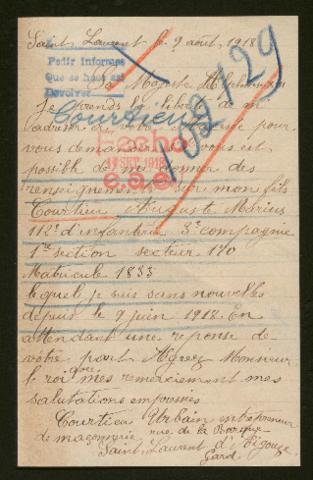 Saint Laurent le 9 août 1918
Pedir informes
Que se haga así
Devolver
Sa Majesté Alphonse XIII
Je prends la liberté de m'
adresser à votre pour
Courtieu
182 129
Fecho
17 SET. 1918
vous demander vous est
possible de me donner des
renseignements sur mon fils
Courtieu Auguste Marius
112e d'infanterie 3e compagnie
1re section secteur 170
Matricule 1833
lequel je suis sans nouvelles
depuis le 9 juin 1918. En
attendant une réponse de
votre part Agréez Monsieur
le roi avec mes remerciement mes
salutations empressés
Courtieu Urbain entrepreneur
de maçonnerie rue de la
Saint Laurent d'Aigouze
Gard